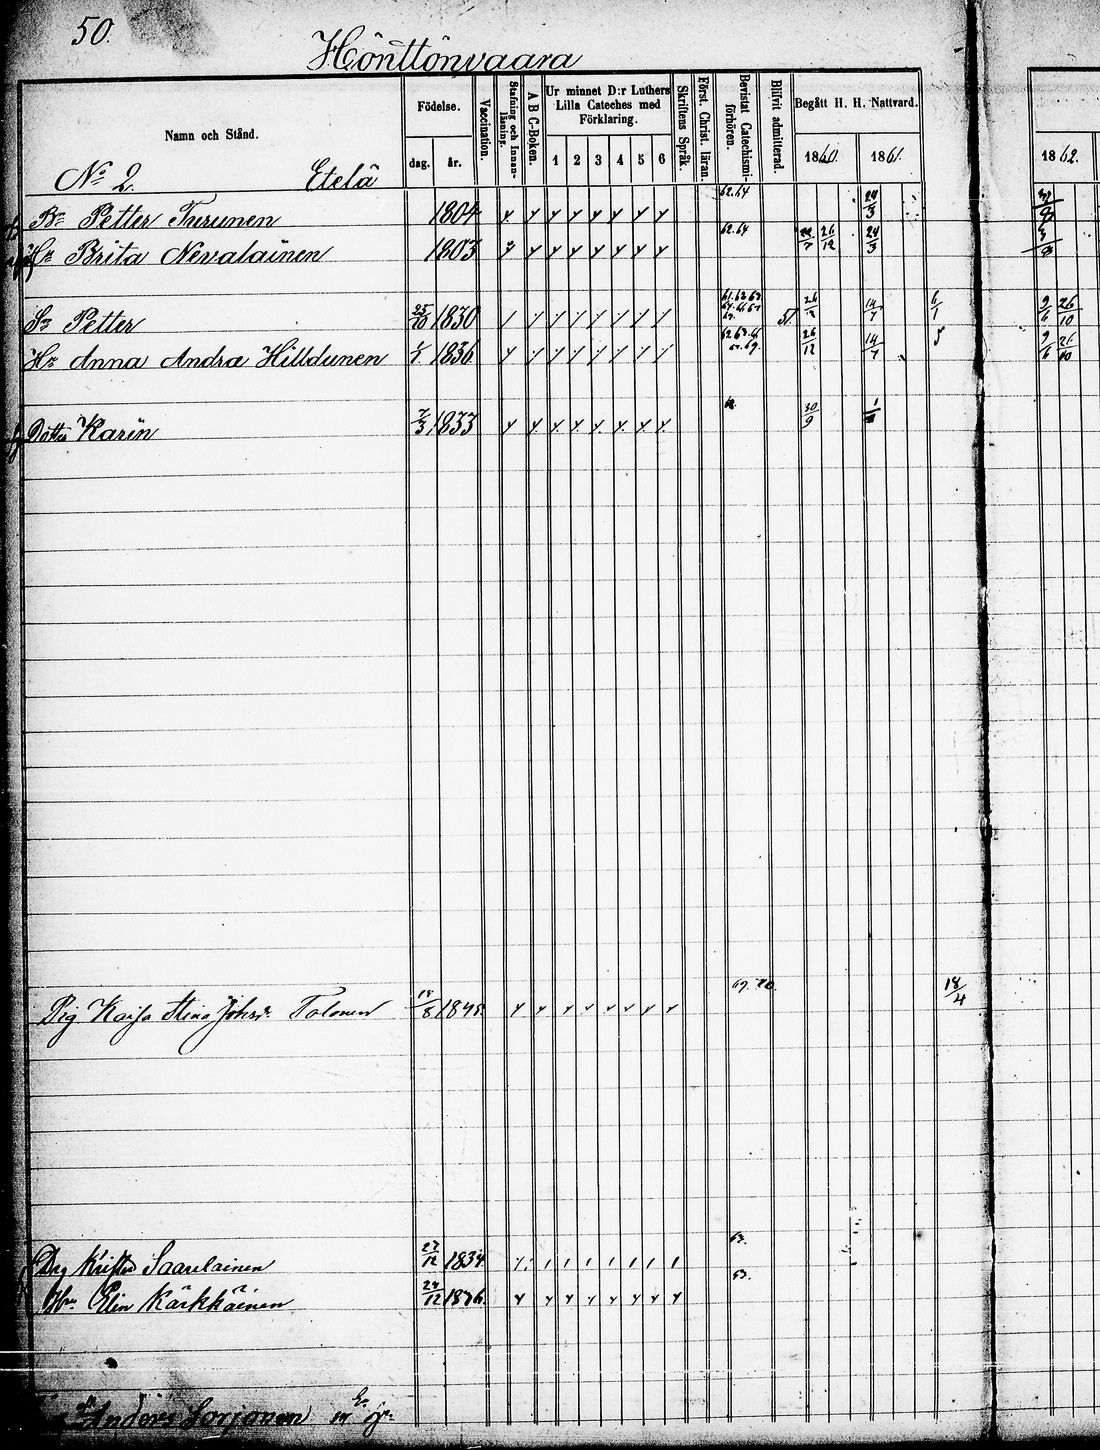 50.
Hönttönvaara
Namn och Stånd.
Födelse.
dag. år.
Vaccination.
Stafning och Innanläsning.
A B C-Boken.
Ur minnet D:r Luthers Lilla Cateches med Förklaring.
1 2 3 4 5 6
Skriftens Språk.
Först. Christ. läran.
Bevistat Catechismiförhören.
Blifvit admitterad.
Begått H. H. Nattvard.
1860. 1861. 1862.
No 2. Etelä
Bo Petter Turunen 1804 62.64 24/3
Hu Brita Nevalainen 1803 62.64 26/12 24/3
So Petter 25/10 1830 51 26/12 14/7 6/1 9/6 26/10
Hu Anna Andrae Hilldunen 1836 26/12 14/7 5 9/6 26/10
Dotter Karin 7/3 1833 30/9
Pig Kaisa Stina Johsdr Tolonen 1845 69. 70. 18/4
Drg Krister Saarelainen 27/12 1834 63.
Hu Elin Kärkkäinen 24/12 1836 63.
Anders Sorjonen